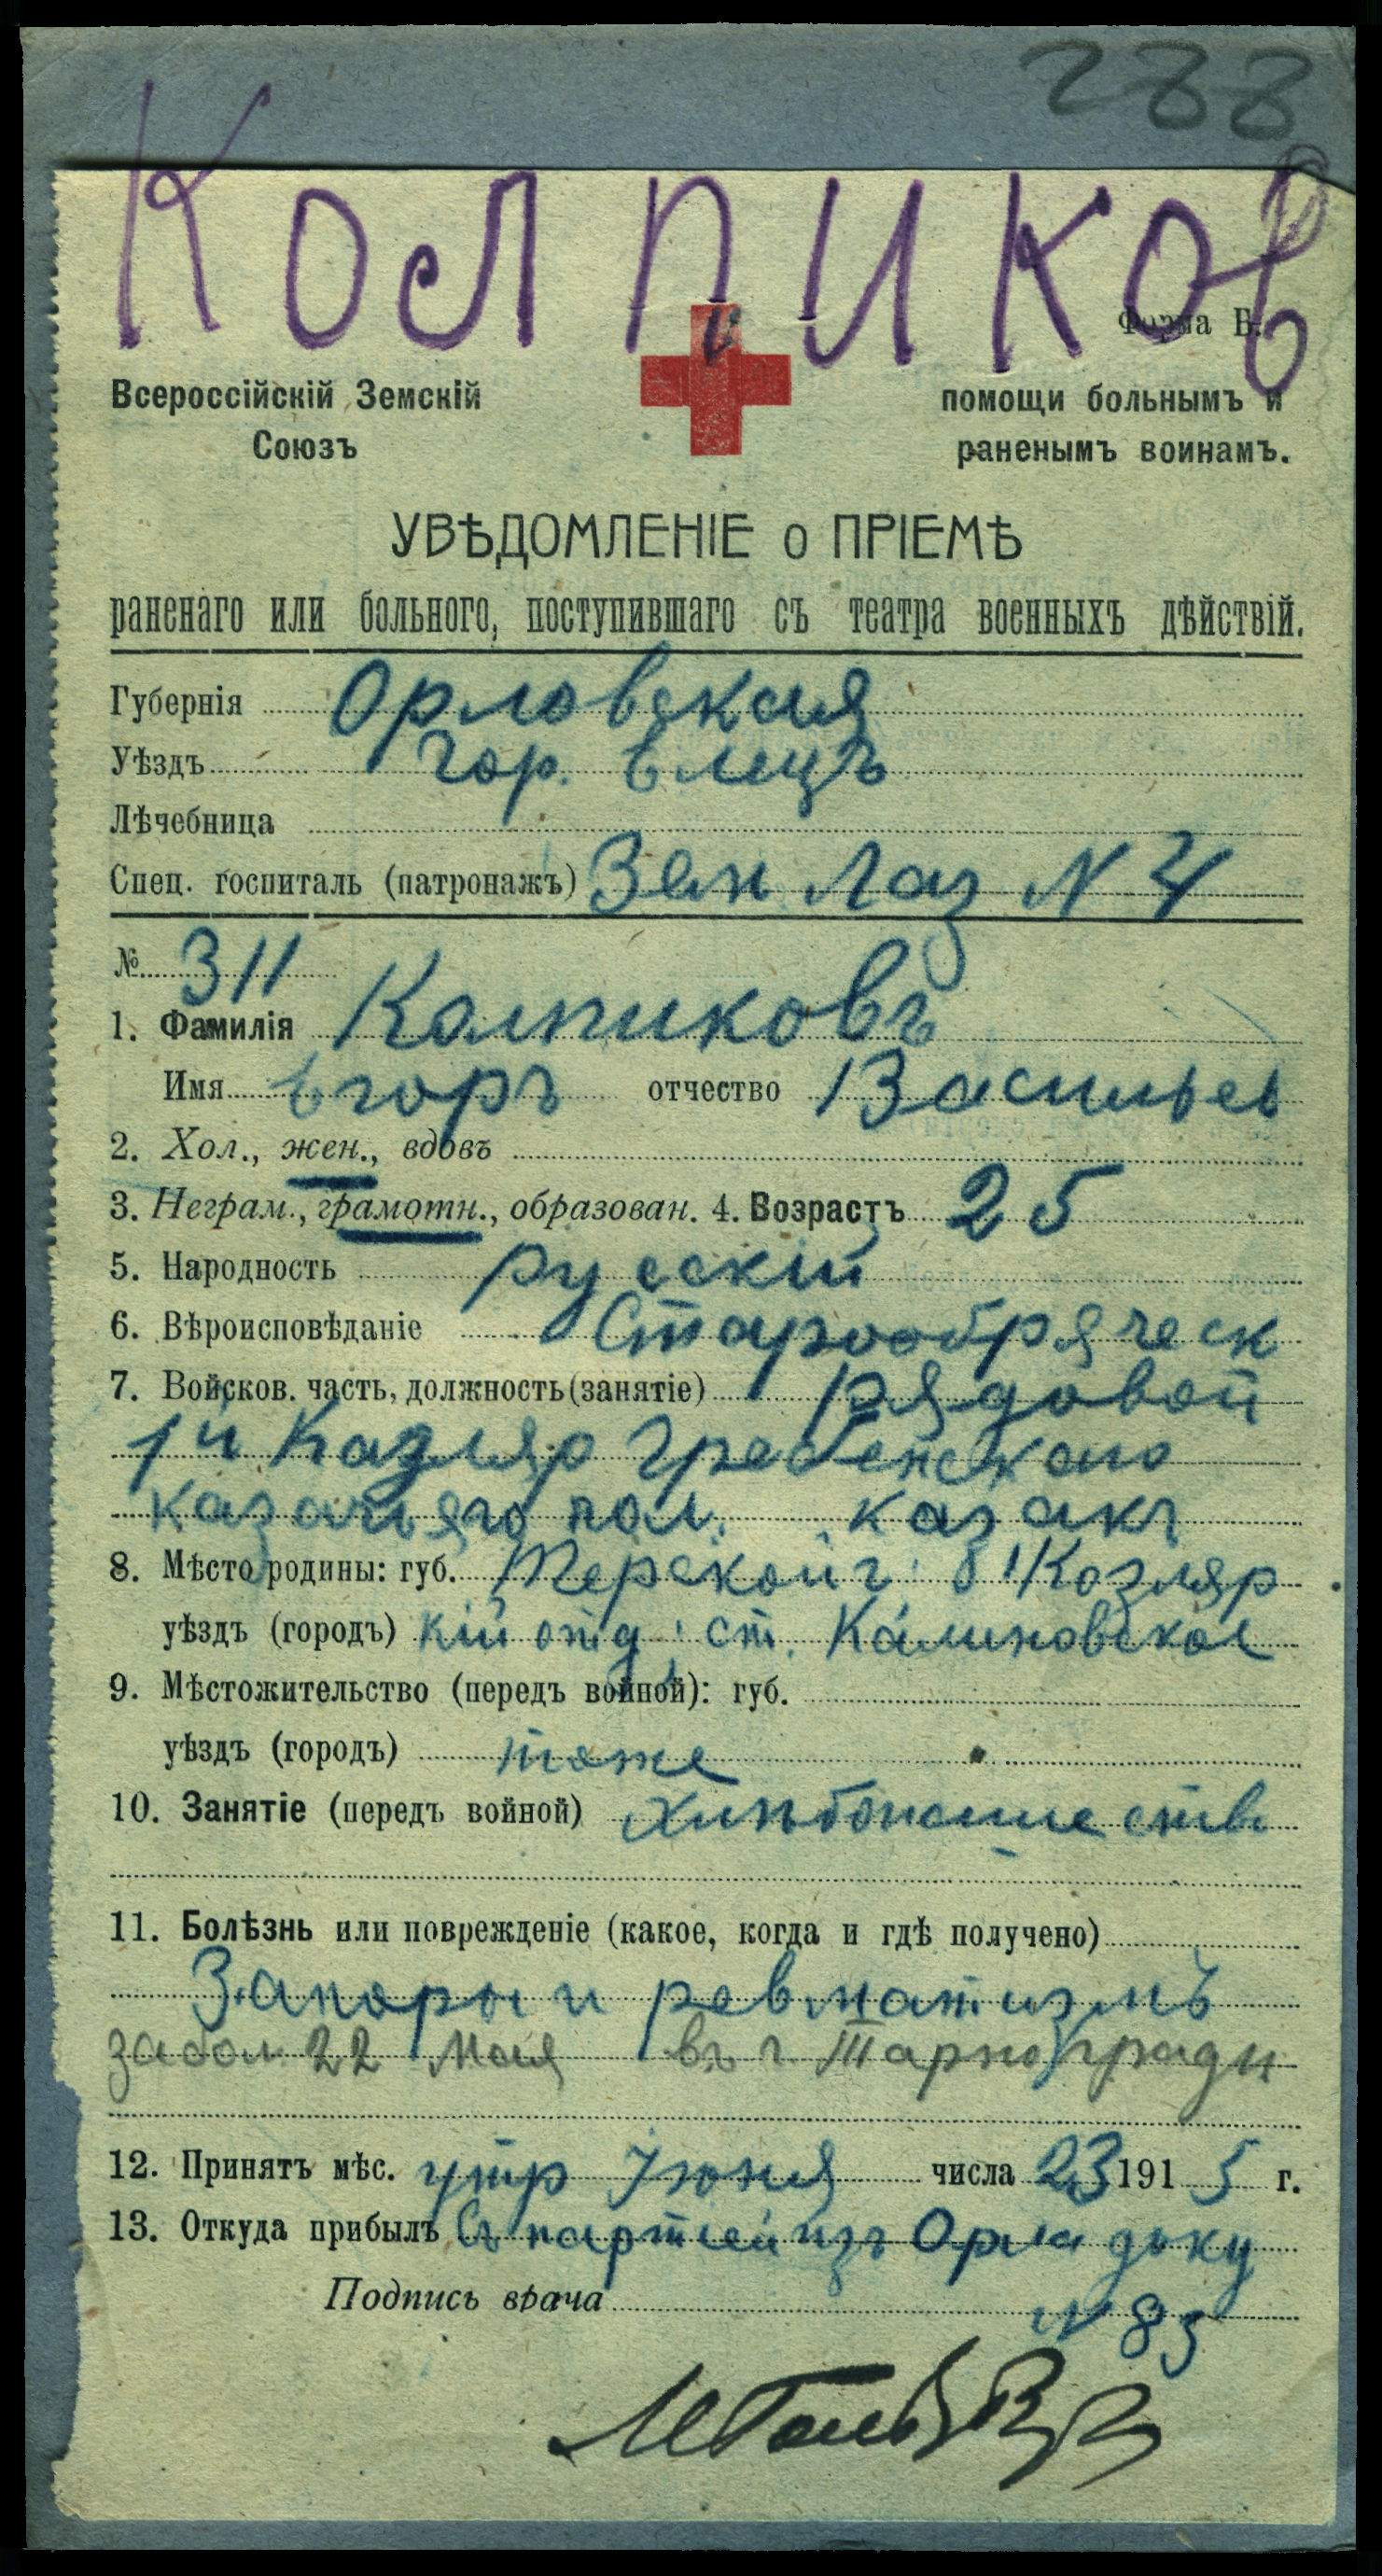 288
Колпиков
Форма Б.
Всероссійскій Земскій помощи больнымъ и
Союзъ раненымъ воинамъ.
УВѢДОМЛЕНІЕ о ПРІЕМѢ
раненаго или больного, поступившаго съ театра военныхъ дѣйствій.
Губернія Орловская
Уѣздъ гор. Елецъ
Лѣчебница
Спец. госпиталь (патронажъ) Зем Лаз N 4
№ 311
1. Фамилія Колпиковъ
Имя Егоръ отчество Васильев
2. Хол., жен., вдовъ
3. Неграм., грамотн., образован. 4. Возрастъ 25
5. Народность русскій
6. Вѣроисповѣданіе Старообряческ
7. Войсков. часть, должность (занятіе) рядовой
1й Казляр Гребенскаго
казачьяго пол. казакъ
8. Мѣсто родины: губ. Терской Козляр
уѣздъ (городъ) кій отд. ст. Калиновское
9. Мѣстожительство (передъ войной): губ.
уѣздъ (городъ) тоже
10. Занятіе (передъ войной) хлѣбопашеств
11. Болѣзнь или поврежденіе (какое, когда и гдѣ получено)
Запоры и ревматизмъ
забол 22 Мая въ г. Тарноградѣ
12. Принятъ мѣс. утр Іюня числа 23 1915 г.
13. Откуда прибылъ Съ партіей изъ Орла доку
Подпись врача N 85